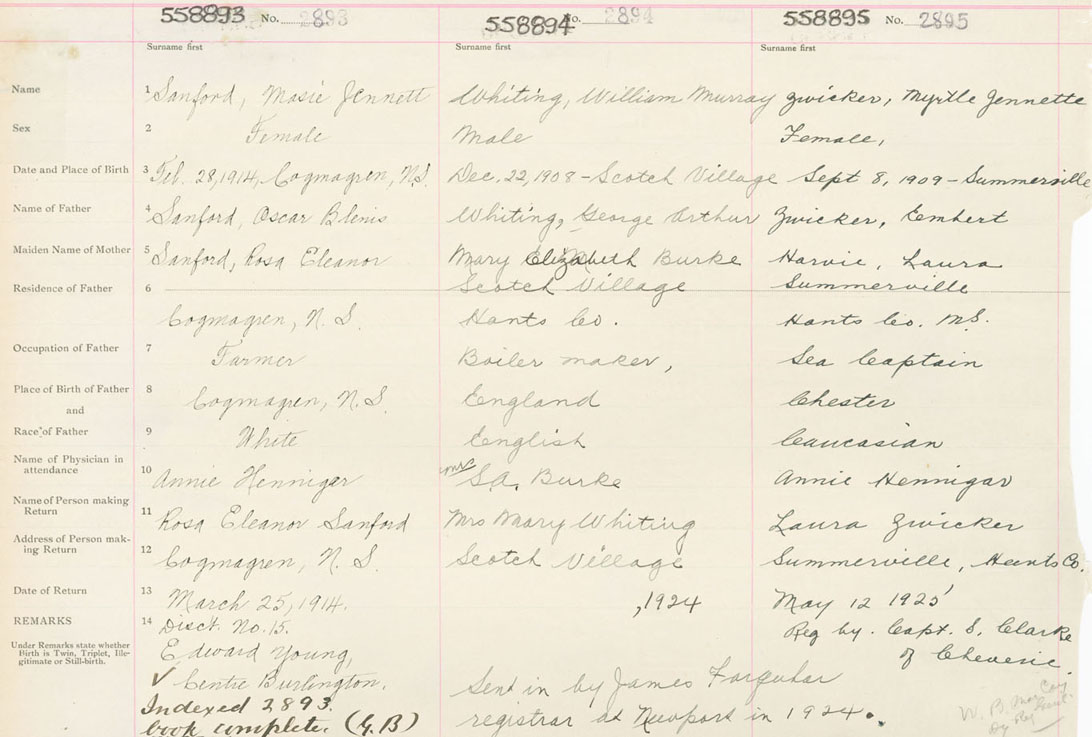 558893 No. 2893 558894 No. 2894 558895 No. 2895
Surname first Surname first Surname first
Name 1 Sanford, Masie Jennett Whiting, William Murray Zwicker, Myrtle Jennette
Sex 2 Female Male Female,
Date and Place of Birth 3 Feb. 28, 1914, Cogmagren, N.S. Dec. 22, 1908 - Scotch Village Sept 8, 1909 - Summerville
Name of Father 4 Sanford, Oscar Blenis Whiting, George Arthur Zwicker, Embert
Maiden Name of Mother 5 Sanford, Rosa Eleanor Mary Elizabeth Burke Harvie, Laura
Residence of Father 6 Scotch Village Summerville
Cogmagren, N. S. Hants Co. Hants Co. N.S.
Occupation of Father 7 Farmer Boiler maker, Sea Captain
Place of Birth of Father 8 Cogmagren, N. S. England Chester
and
Race of Father 9 White English Caucasian
Name of Physician in
attendance 10 Annie Hennigar Mrs S.A. Burke Annie Hennigar
Name of Person making
Return 11 Rosa Eleanor Sanford Mrs Mary Whiting Laura Zwicker
Address of Person mak-
ing Return 12 Cogmagren, N. S. Scotch Village Summerville, Hants Co.
Date of Return 13 March 25, 1914. , 1924 May 12 1925
REMARKS 14 Disct. No. 15. Reg by. Capt. S. Clarke
Under Remarks state whether
Birth is Twin, Triplet, Ille-
gitimate or Still-birth.
Edward Young, of Cheverie.
✓ Centre Burlington. Sent in by James Farquhar
Indexed 2893. registrar at Newport in 1924.
book complete. (G.B) W. B.